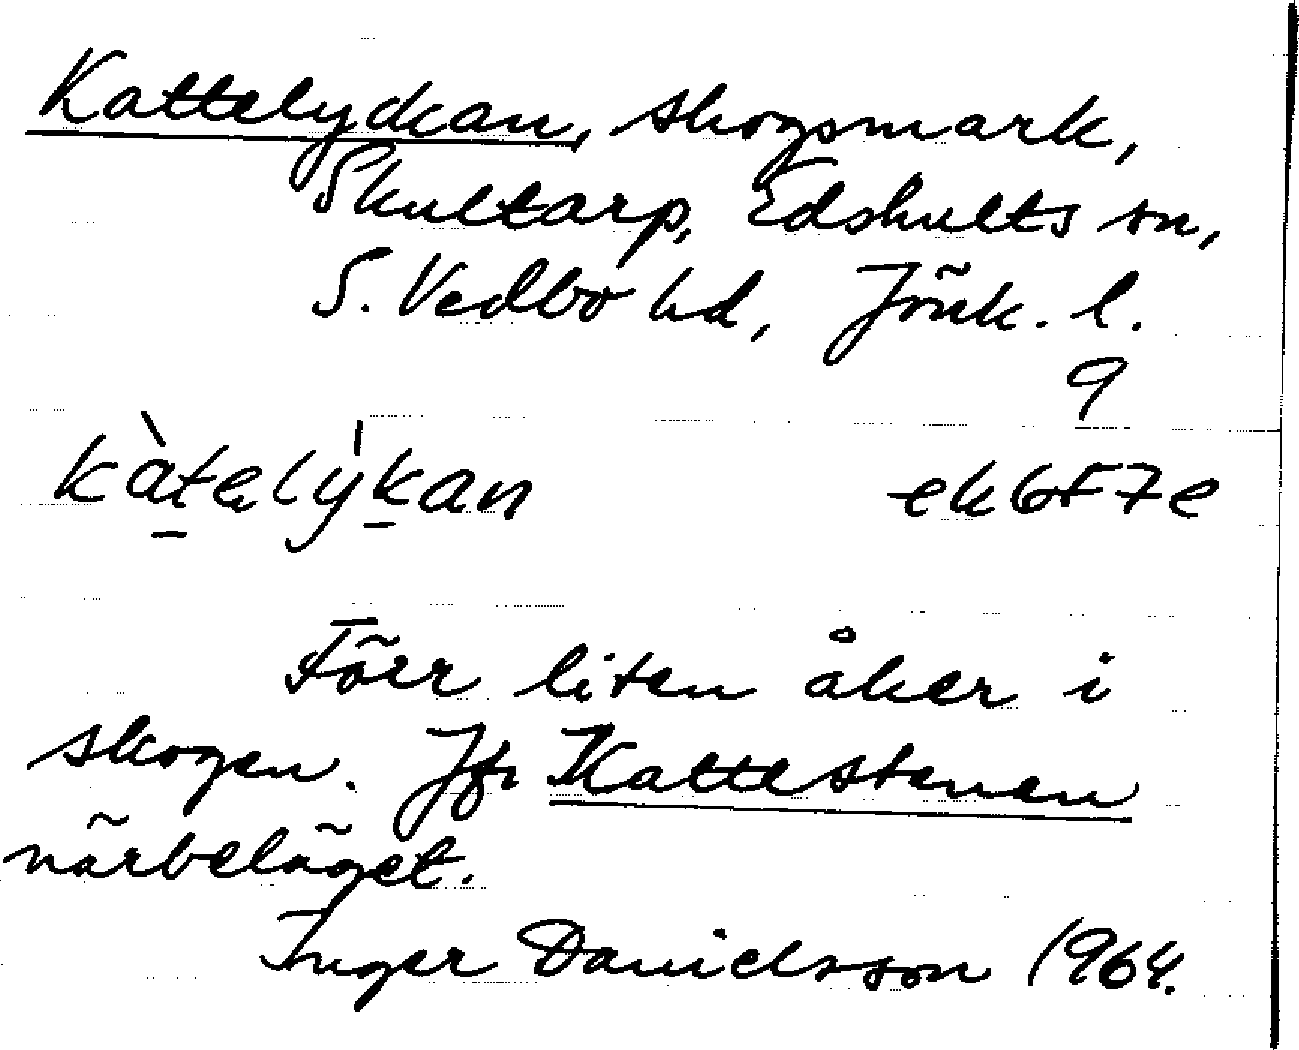 Kattelyckan, skogsmark,
Skultarp, Edshults sn,
S. Vedbo hd, Jönk. l.
9
kàt̠elýk̠an ek6F7e
Förr liten åker i
skogen. Jfr Kattestenen
närbeläget.
Inger Danielsson 1964.